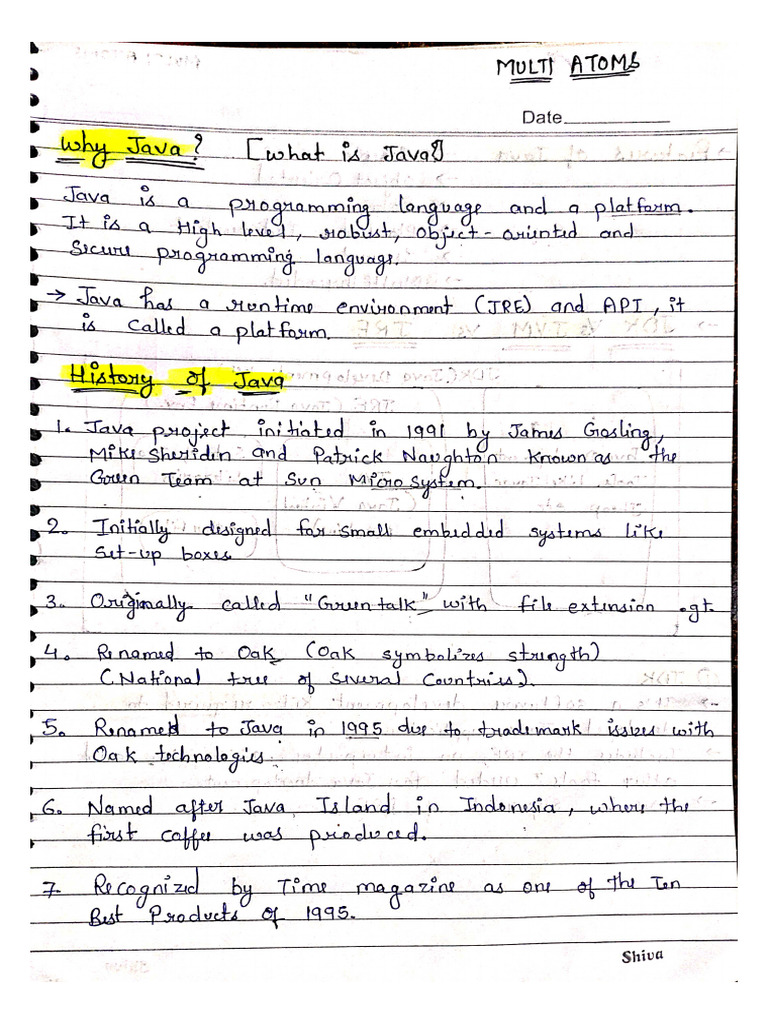 MULTI ATOMS
Date
Why Java? [What is Java?]
Java is a programming language and a platform.
It is a High level, robust, object-oriented and
Secure programming language.
→ Java has a runtime environment (JRE) and API, it
is called a platform.
History of Java
1. Java project initiated in 1991 by James Gosling,
Mike Sheriden and Patrick Naughton known as the
Green Team at Sun MicroSystem.
2. Initially designed for small embedded systems like
Set-up boxes.
3. Originally called "Green talk" with file extension .gt.
4. Renamed to Oak (Oak symbolizes strength)
(National tree of Several Countries).
5. Renamed to Java in 1995 due to trademark issues with
Oak technologies
6. Named after Java Island in Indonesia, where the
first coffee was produced.
7. Recognized by Time magazine as one of the Ten
Best Products of 1995.
Shiva